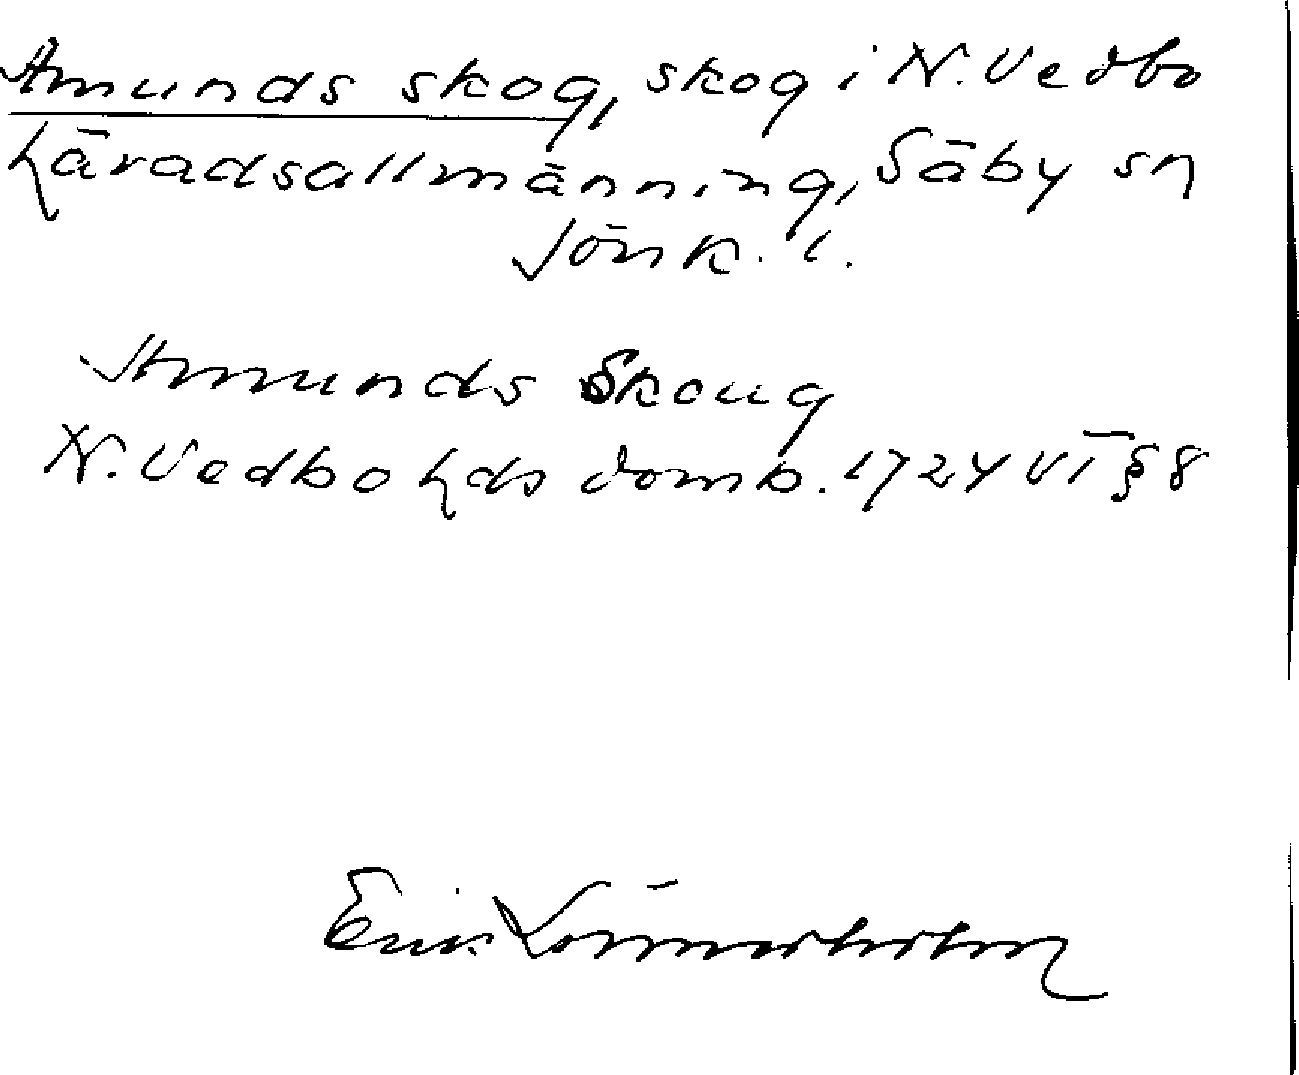 Amunds skog, skog i N. Vedbo
häradsallmänning, Säby sn
Jönk. l.
Amunds Skoug
N. Vedbo hds domb. 1724 VI § 8
Erik Lönnerholm